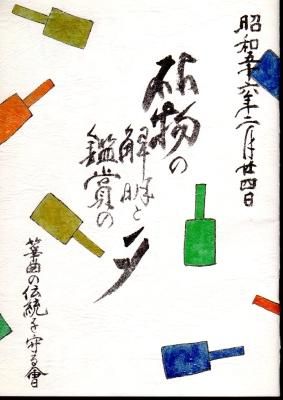 昭和五十六年二月廿四日
砧物の
解明と
鑑賞の
夕
箏曲の伝統を守る會